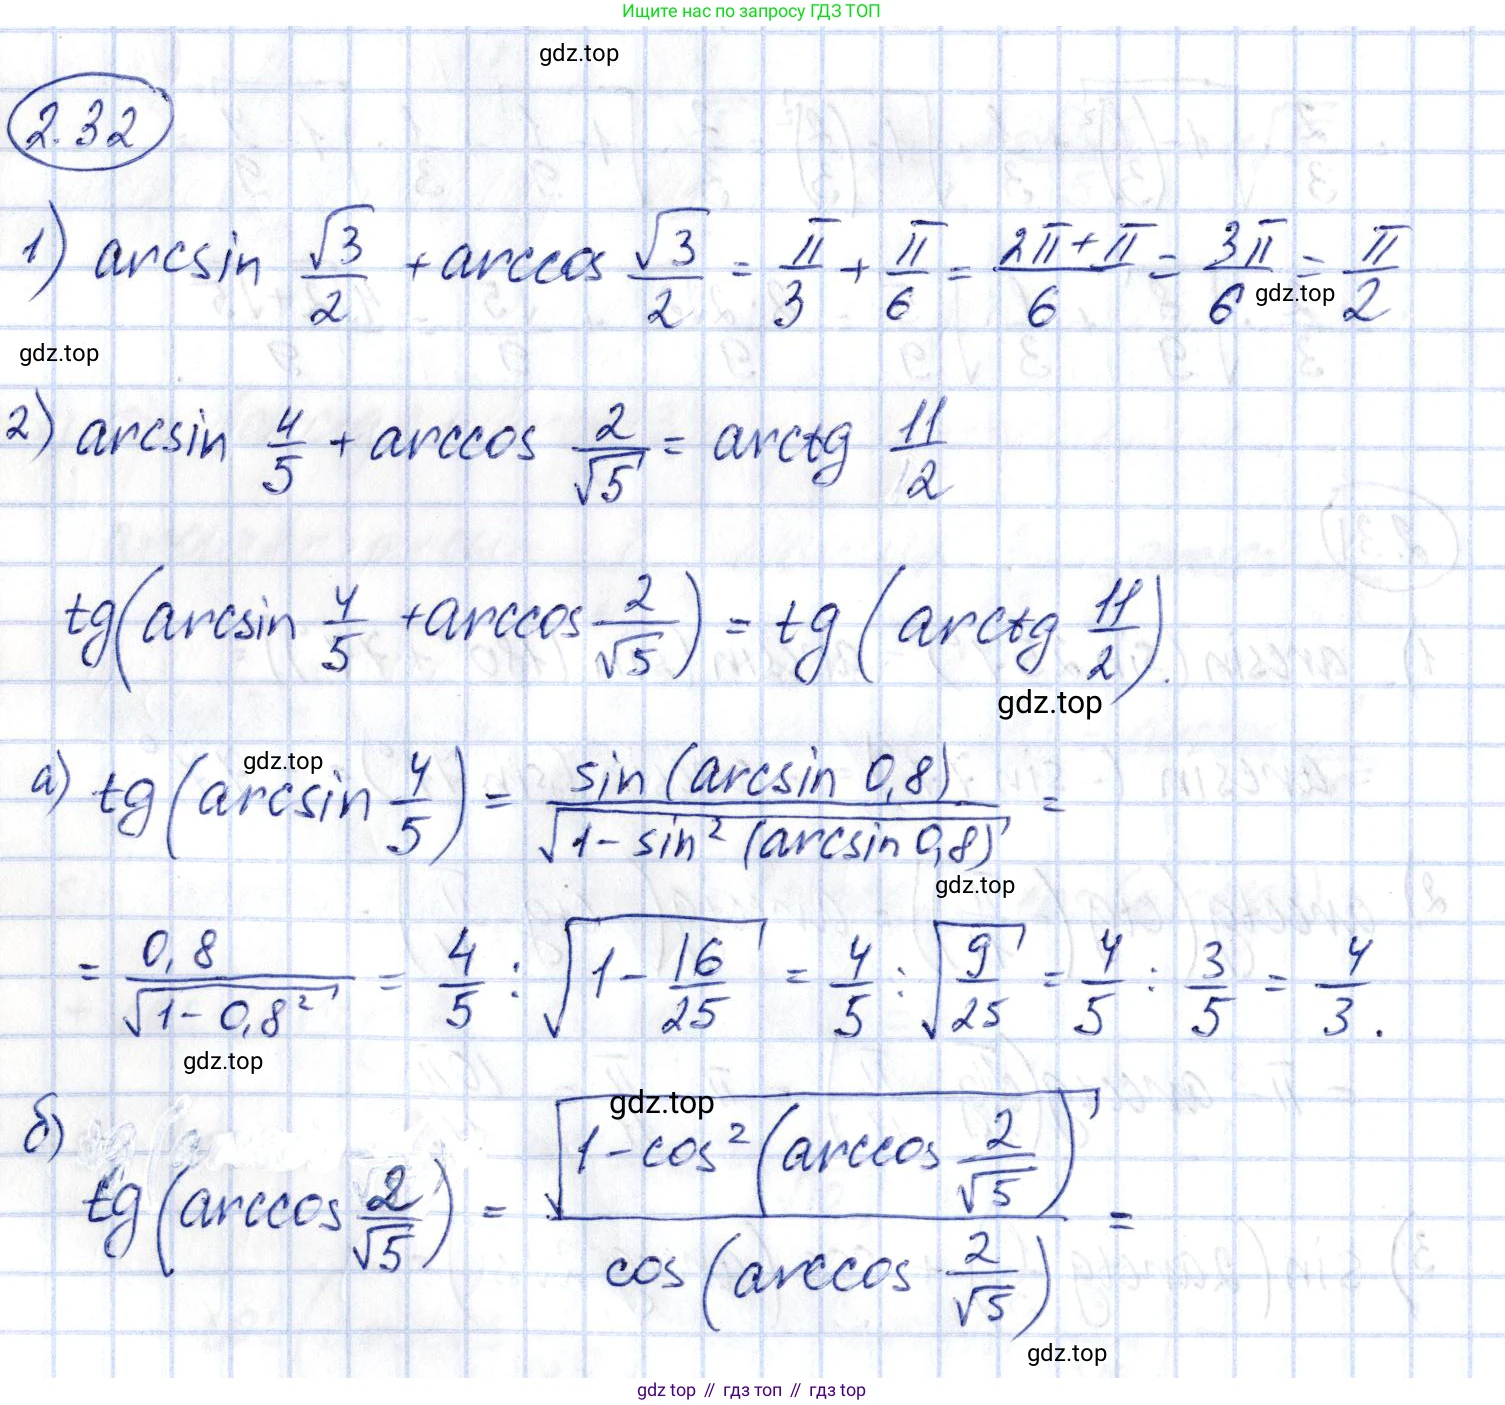 Ищите нас по запросу ГДЗ ТОП
gdz.top
2.32
1) arcsin √3/2 + arccos √3/2 = π/3 + π/6 = (2π+π)/6 = 3π/6 = π/2
gdz.top
gdz.top
2) arcsin 4/5 + arccos 2/√5 = arctg 11/2
tg(arcsin 4/5 + arccos 2/√5) = tg(arctg 11/2).
gdz.top
gdz.top
а) tg(arcsin 4/5) = sin(arcsin 0,8)/√(1-sin²(arcsin 0,8)) =
gdz.top
= 0,8/√(1-0,8²) = 4/5 : √(1-16/25) = 4/5 : √(9/25) = 4/5 : 3/5 = 4/3.
gdz.top
gdz.top
б) tg(arccos 2/√5) = √(1-cos²(arccos 2/√5))/cos(arccos 2/√5) =
gdz.top
gdz top // гдз топ // гдз top